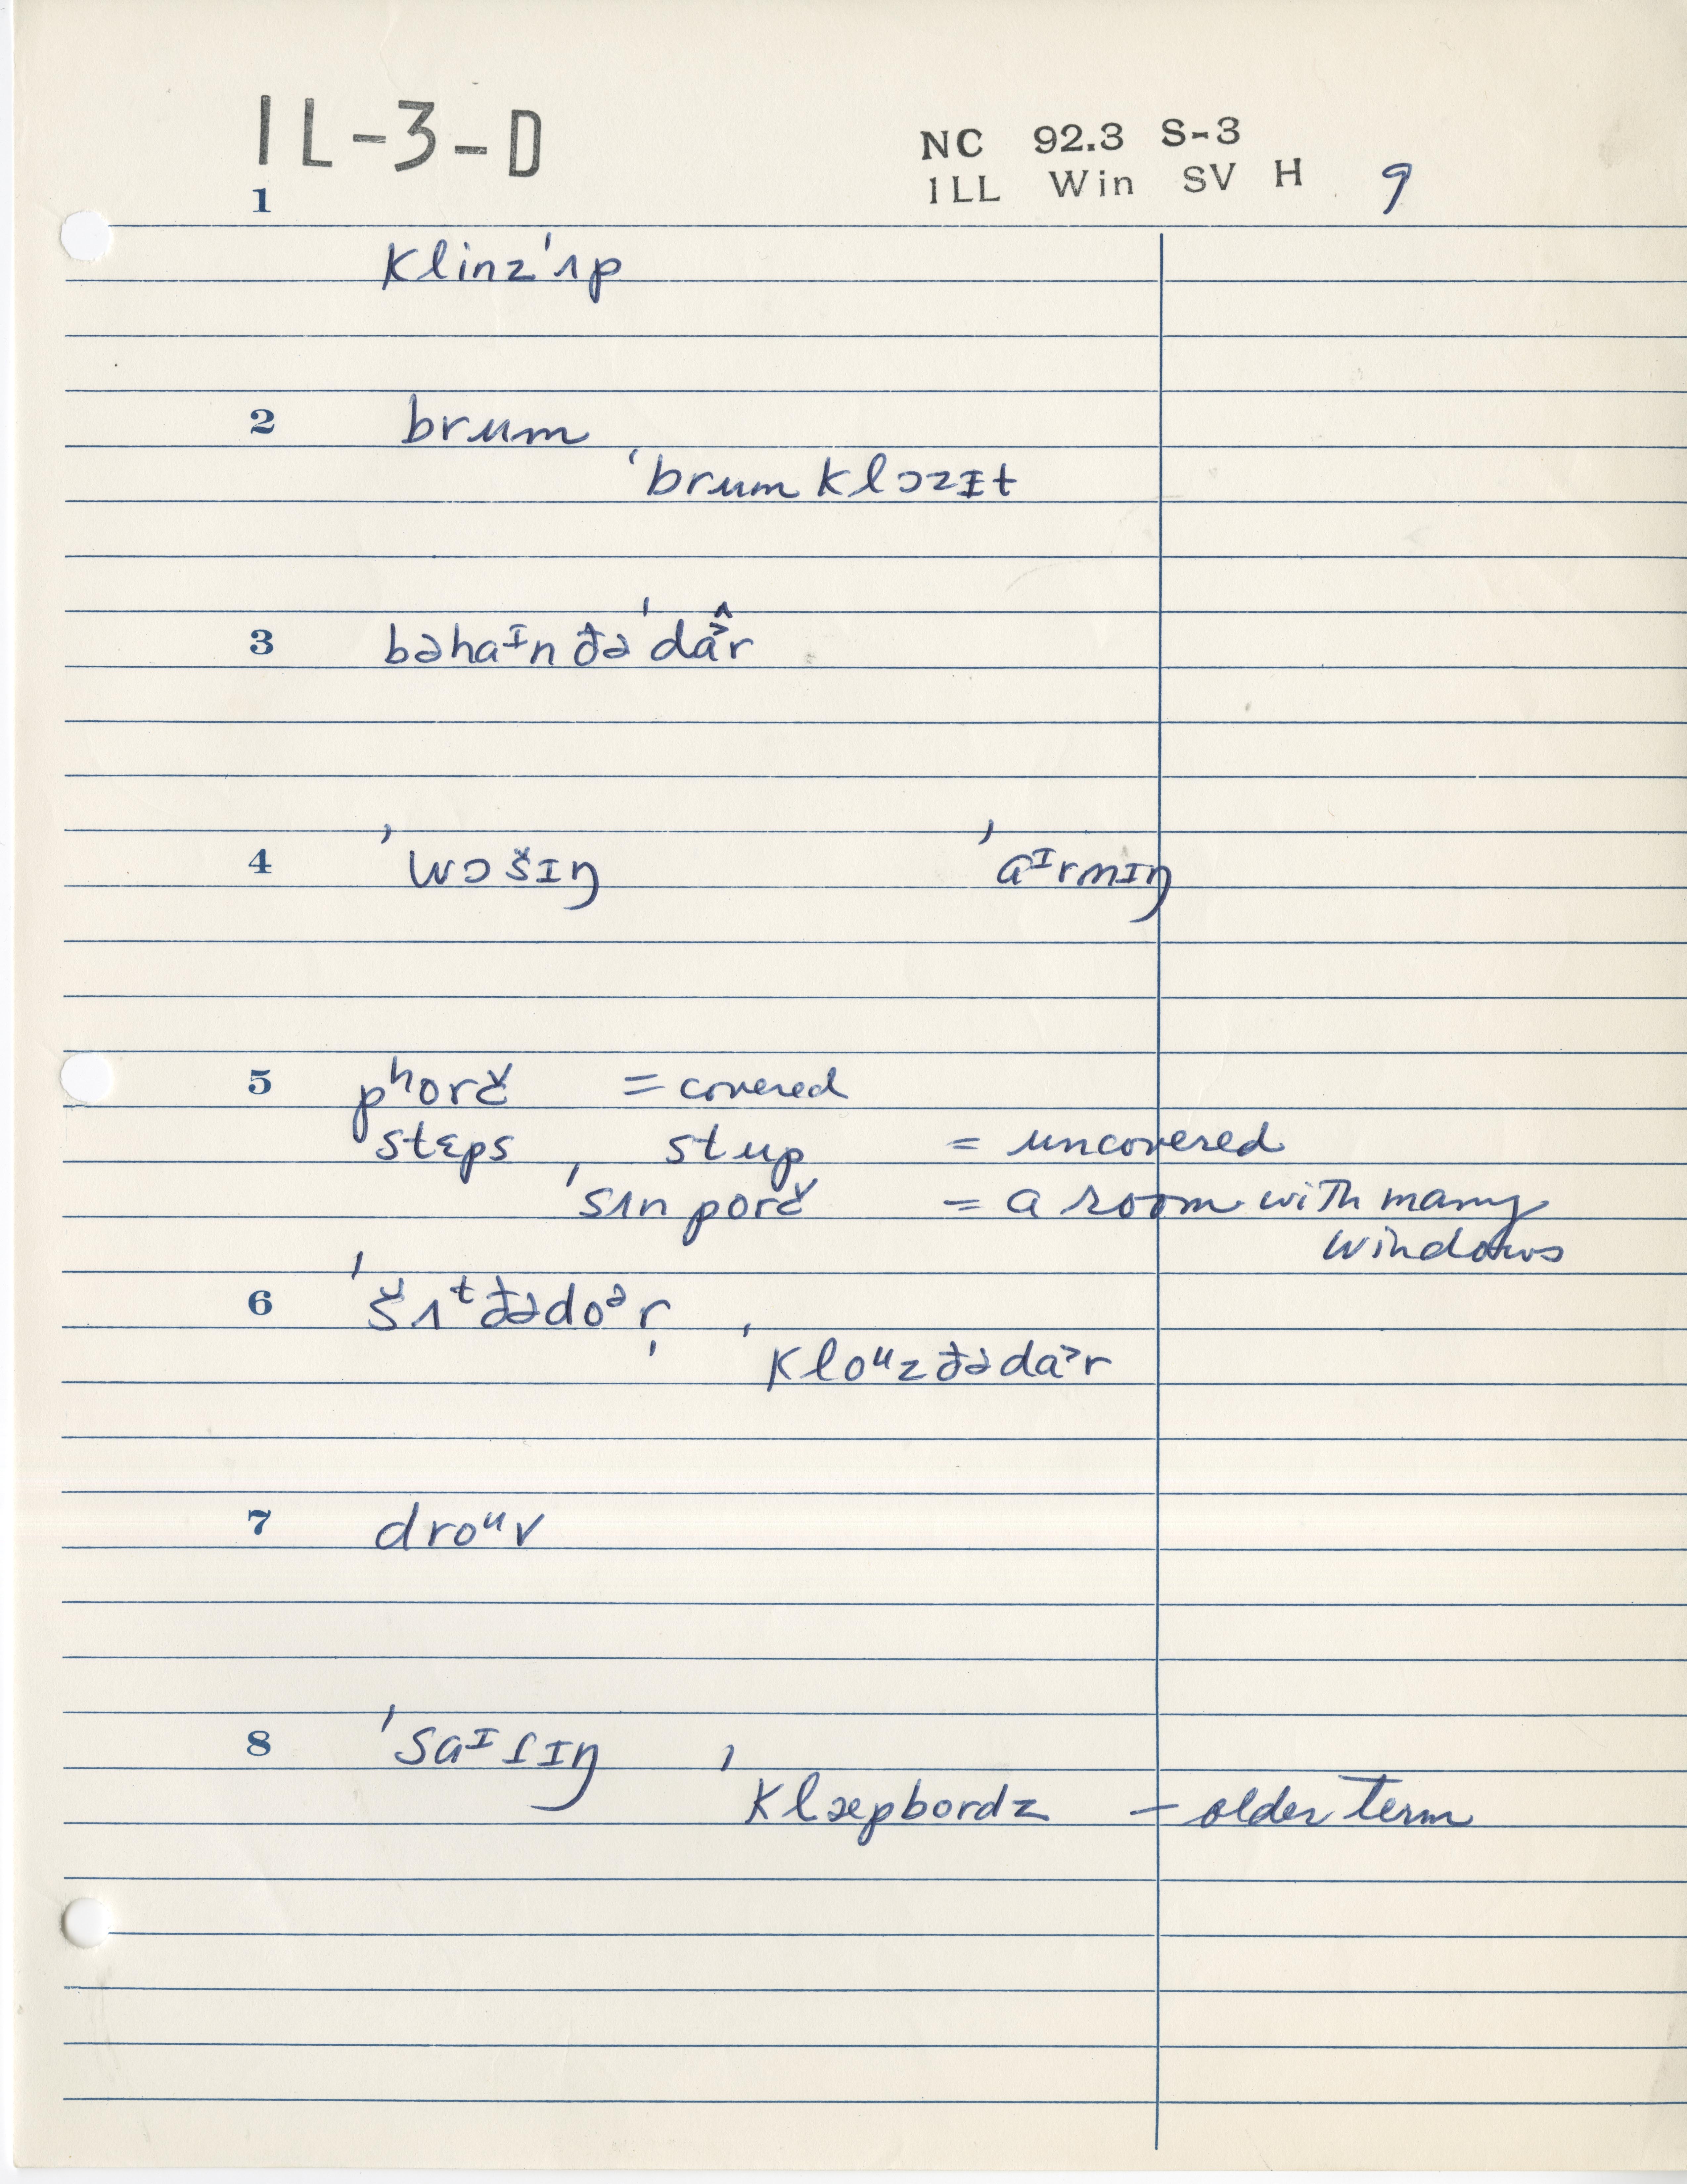 IL-3-D
NC 92.3 S-3
ILL Win SV H 9
1
klinzˈʌp
2 brum
ˈbrum klɔzɪt
3 bəhaᶦn ðəˈdɑ̂ᵊr
4 ˈwɔšɪŋ ˈaᶦrnɪŋ
5 pʰorč = covered
steps, stup = uncovered
ˈsʌn porč = a room with many
windows
6 ˈšʌᵗðədoᵊr, ˈkloᵘzðədaᵊr
7 droᵘv
8 ˈsaᶦɾɪŋ ˈklæpbordz - older term